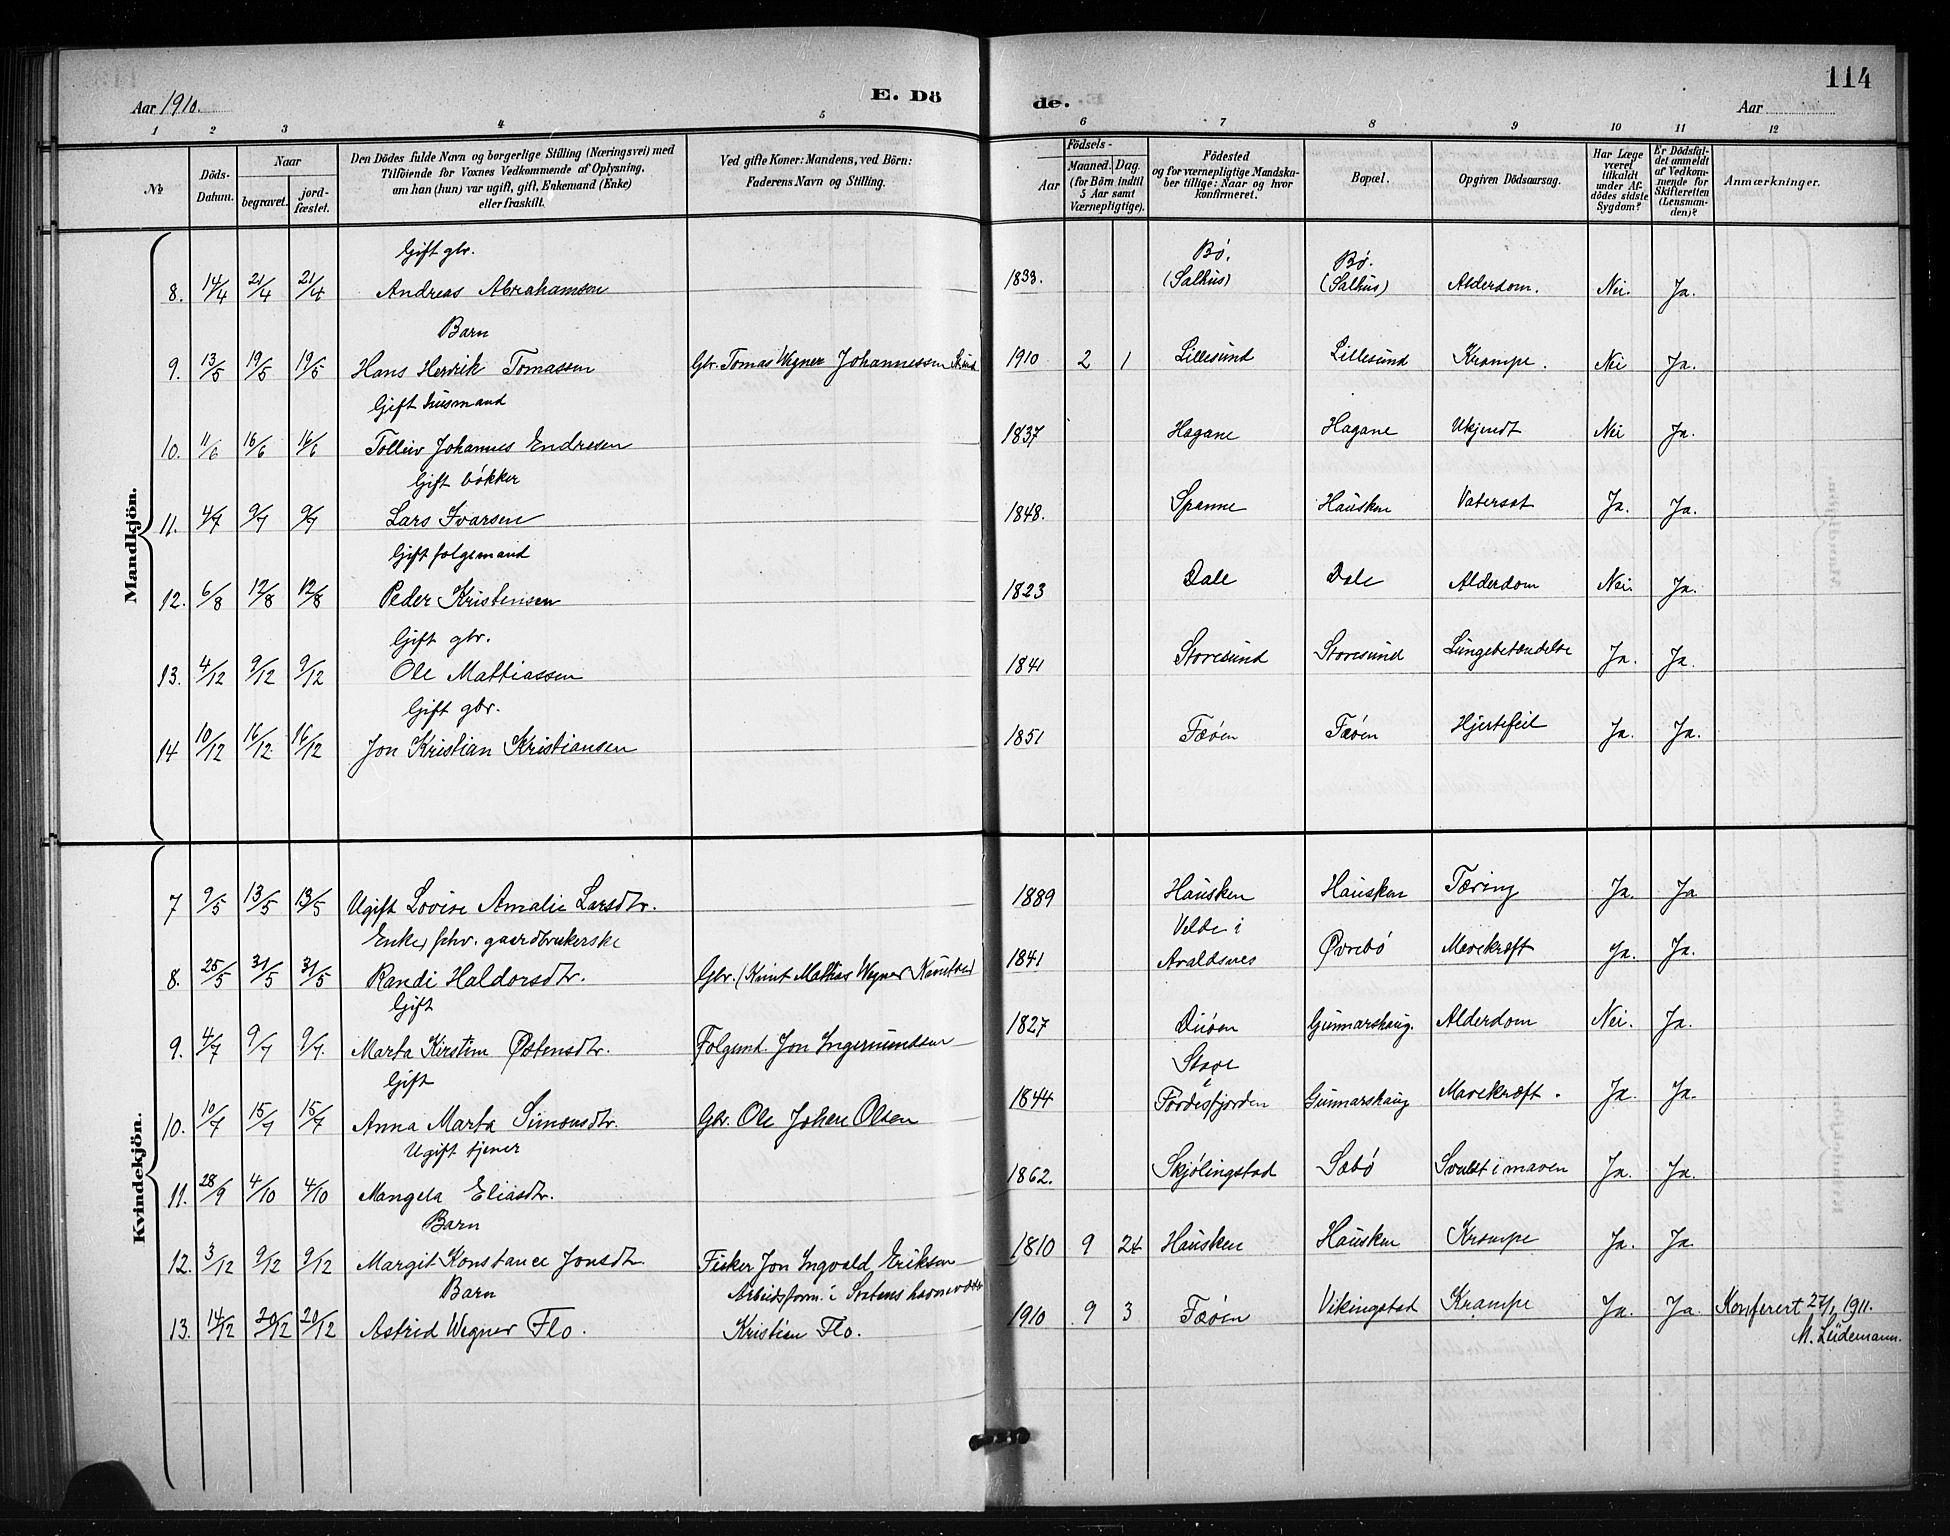 114
Aar 1910.
E. Döde.
Aar
1 2 3 4 5 6 7 8 9 10 11 12
No
Döds-Datum.
Naar
begravet.
jord-fæstet.
Den Dödes fulde Navn og borgerlige Stilling (Næringsvei) med
Tilföiende for Voxnes Vedkommende af Oplysning,
om han (hun) var ugift, gift, Enkemand (Enke)
eller fraskilt.
Ved gifte Koner: Mandens, ved Börn:
Faderens Navn og Stilling.
Födsels-
Aar
Maaned. Dag.
(for Börn indtil
5 Aar samt
Værnepligtige).
Födested
og for værnepligtige Mandska-
ber tillige: Naar og hvor
konfirmeret.
Bopæl.
Opgiven Dödsaarsag.
Har Læge
været
tilkaldt
under Af-
dödes sidste
Sygdom?
Er Dödsfal-
det anmeldt
af Vedkom-
mende for
Skifteretten
(Lensman-
den)?
Anmærkninger.
Mandkjön.
Gift gbr.
8. 14/4 21/4 21/4 Andreas Abrahamsen 1833. Bø, (Salhus) Bø. (Salhus) Alderdom. Nei. Ja.
Barn
9. 13/5 19/5 19/5 Hans Henrik Tomassen Gbr. Tomas Wegner Johannessen 1910 2 1 Lillesund Lillesund Krampe. Nei Ja.
Gift husmand
10. 11/6 16/6 16/6 Tolleiv Johannes Endresen 1837 Hagane Hagane Ukjendt Nei Ja.
Gift bøkker
11. 4/7 9/7 9/7 Lars Ivarsen 1848. Spanne Hausken Vatersot Ja. Ja.
Gift folgemand
12. 6/8 12/8 12/8 Peder Kristensen 1823 Dale Dale Alderdom Nei. Ja.
Gift gbr.
13. 4/12 9/12 9/12 Ole Mattiassen 1841 Storesund Storesund Lungebetændelse Ja. Ja.
Gift gbr.
14 10/12 16/12 16/12 Jon Kristian Kristiansen 1851 Fæøen Fæøen Hjertefeil Ja. Ja.
Kvindekjön.
7 9/5 13/5 13/5 Ugift Lovise Amalie Larsdtr. 1889 Hausken Hausken Tæring Ja. Ja
Enke, fhv. gaardbrukerske
8. 25/5 31/5 31/5 Randi Haldorsdtr. Gbr. (Knut Mathias Wegner Knutsen) 1841 Velde i Avaldsnes Øvrebø Mavekræft Ja. Ja.
Gift
9. 4/7 9/7 9/7. Marta Kirstine Østensdtr. Folgemd. Jon Ingemundsen 1827 Diøen Gunnarshaug. Alderdom Nei. Ja.
Gift
10. 10/7 15/7 15/7 Anna Marta Simonsdtr. Gbr. Ole Johan Olsen 1844 Stave i Førdesfjorden Gunnarshaug Mavekræft. Ja. Ja.
Ugift tjener
11. 28/9 4/10 4/10 Mangela Eliasdtr. 1862. Skjølingstad Sæbø Svulst i maven Ja. Ja.
Barn
12. 3/12 9/12 9/12 Margit Konstance Jonsdtr. Fisker Jon Ingvald Eriksen 1810 9 24 Hausken Hausken Krampe Ja. Ja.
Barn Arbeidsform. i Statens havnevæsen
13. 14/12 20/12 20/12 Astrid Wegner Flo. Kristian Flo. 1910 9 3 Fæøen Vikingstad Krampe Ja. Ja. Konferert 27/1 1911.
M. Lüdemann.